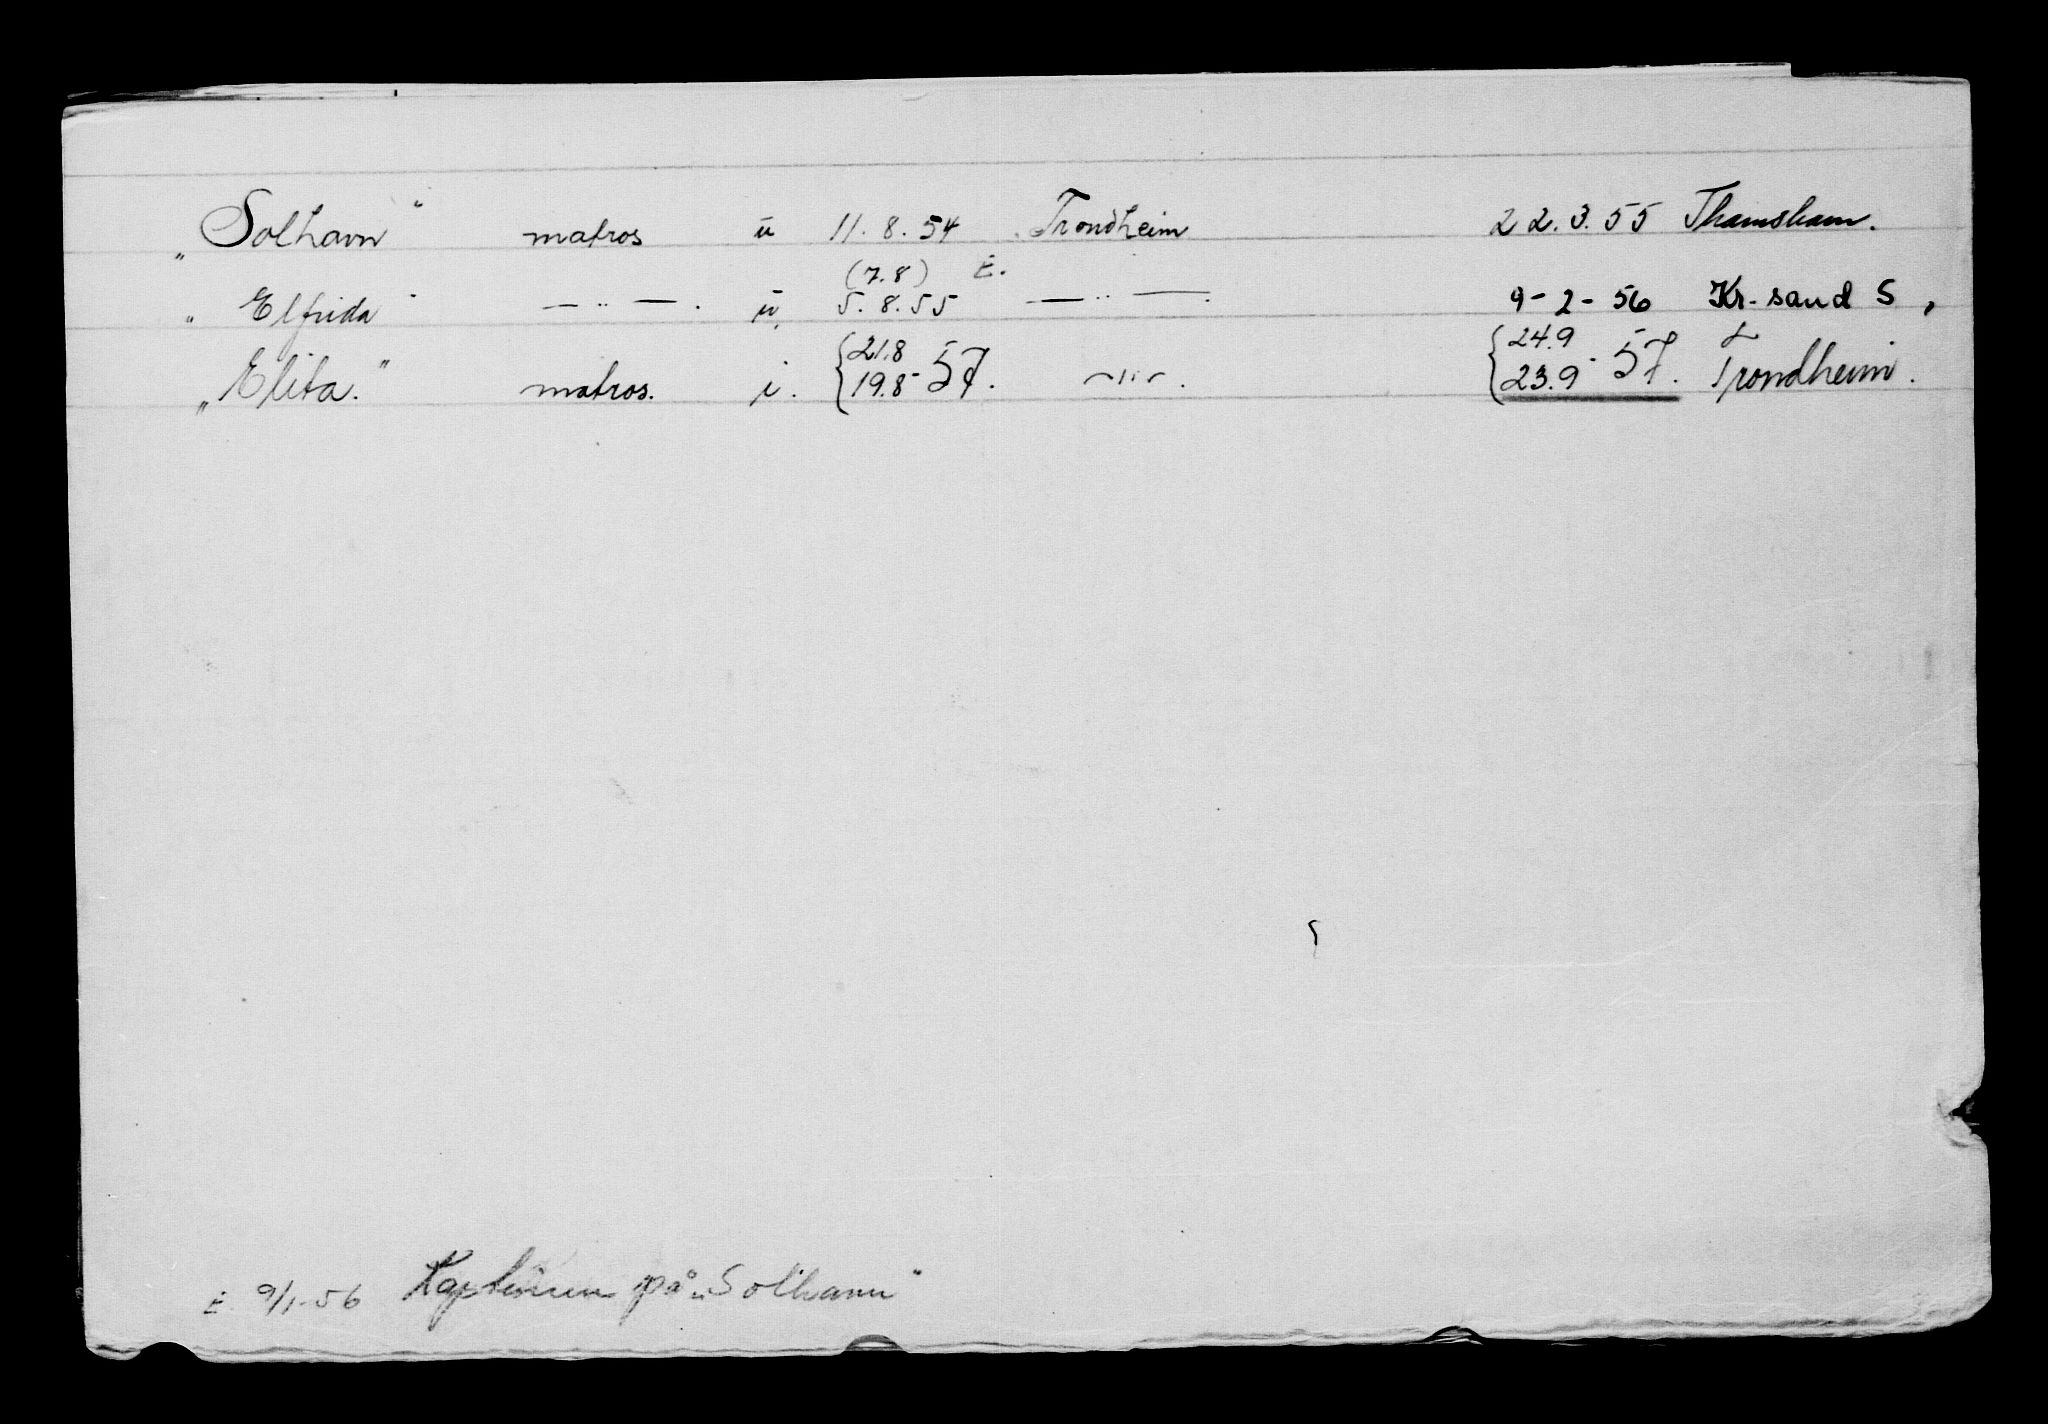 „Solhavn" matros u 11.8.54 Trondheim 22.3.55 Thamshavn.
(7.8) E.
„Elfrida" — " —. u. 5.8.55 — " —. 9-2-56 Kr.sand S,
{21.8 {24.9
„Elita." matros. i. {19.8-57. —"—. {23.9-57. Trondheim.
E. 9/1-56 på „Solhavn"